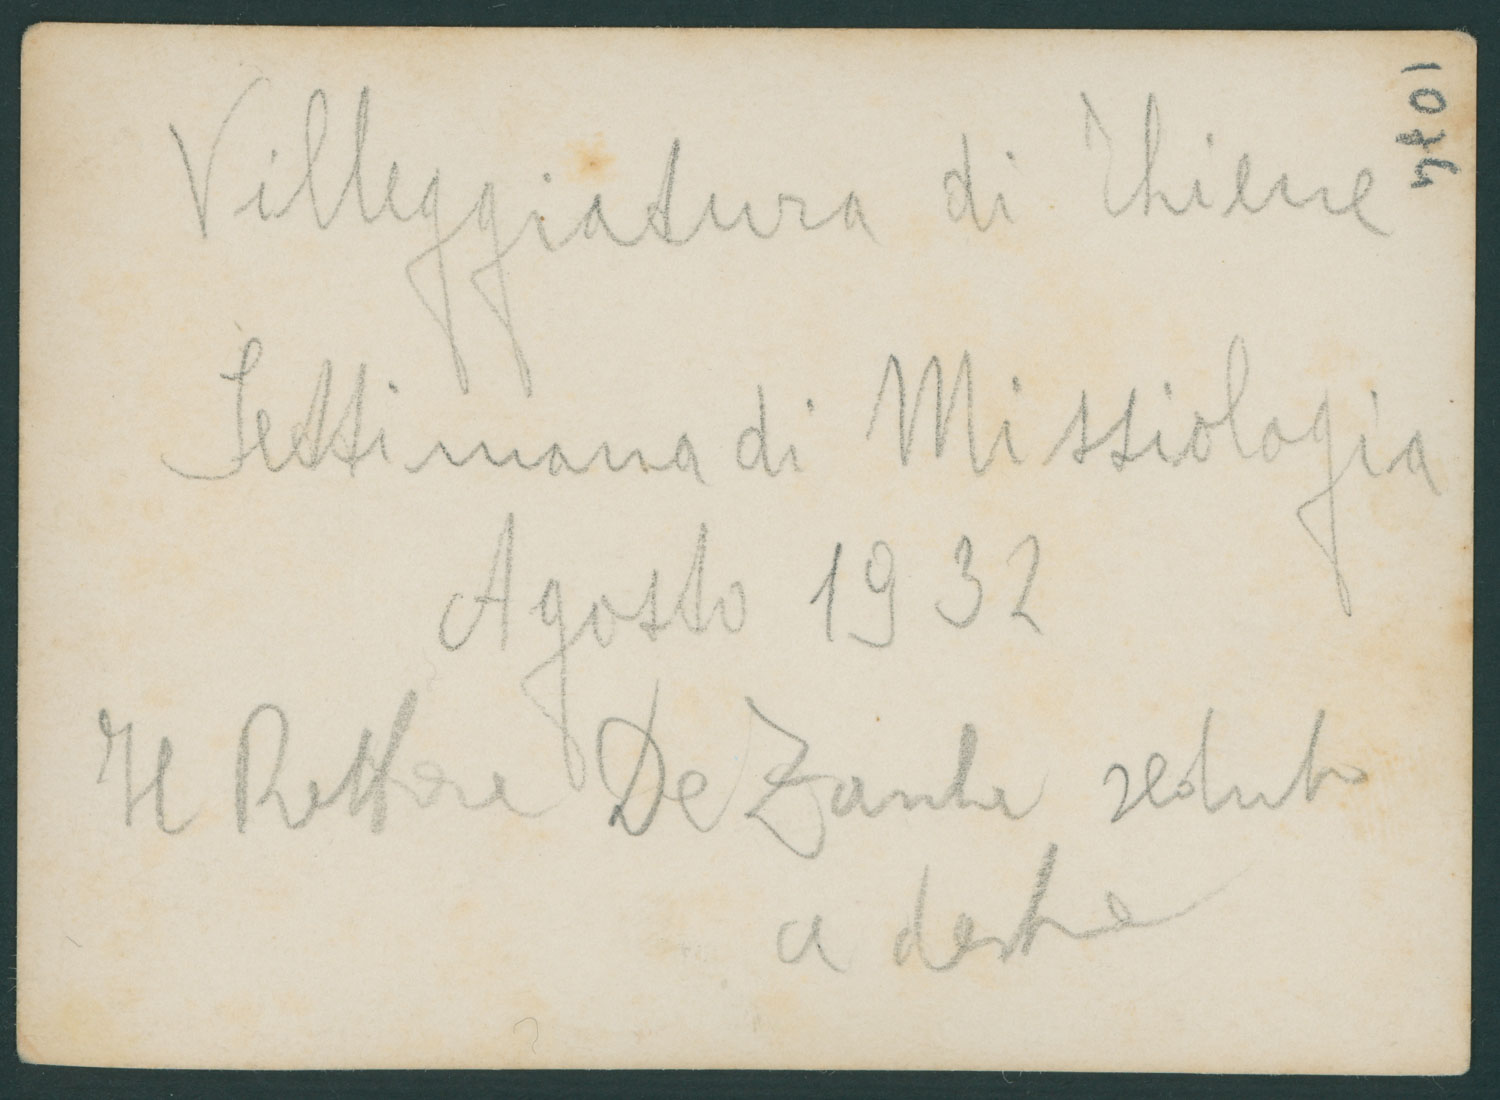 Villeggiatura di Thiene
Settimana di Missiologia
Agosto 1932
Il Rettore De Zanche seduto
a destra